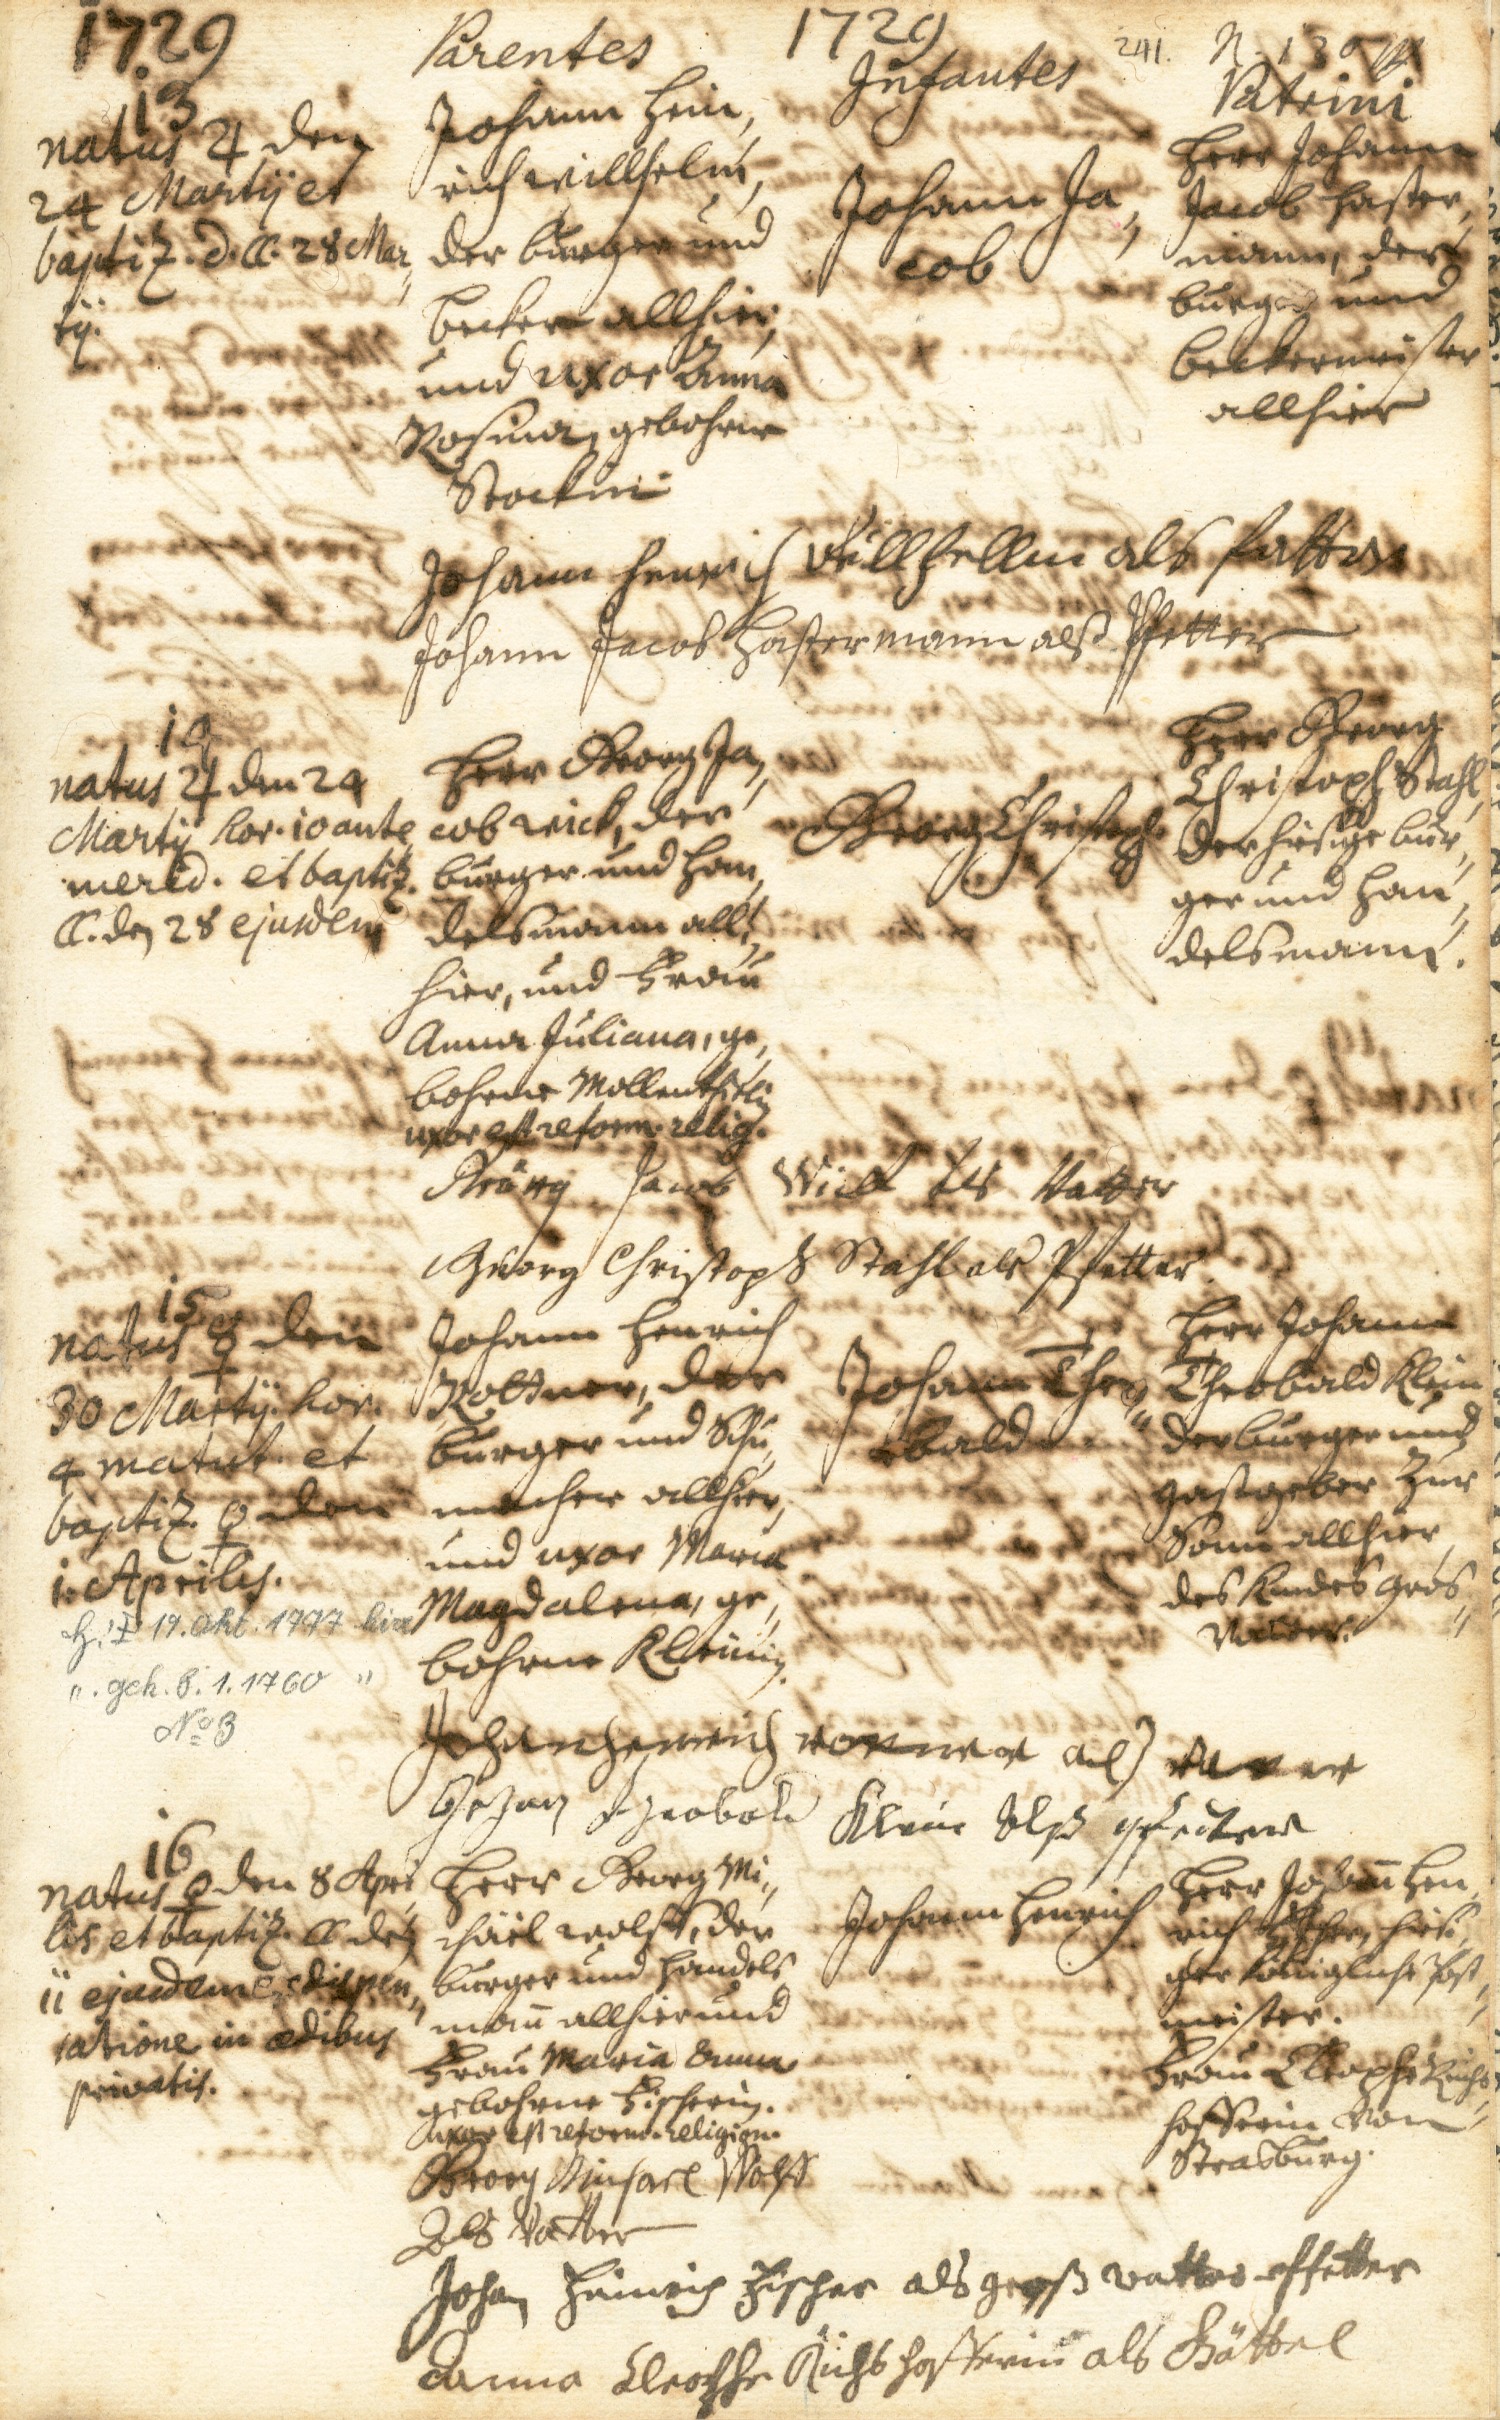 1729
Parentes
1729
Infantes
241.
N. 130
Patrini
13
natus ♃ den
24 Martij et
baptiz. d. ☾. 28 Mar,,
tij.
Johann Hein,,
rich Willhelm,
der burger und
becker allhier,
und uxor Anna
Rosina, gebohrne
Stockin
Johann Ja,,
cob
Herr Johann
Jacob Haster,,
mann, der
burger und
beckermeister
allhier
Johann Henrich Willhellm als Vatter
Johann Jacob Hastermann alß Pfetter
14
natus ♃ den 24
Martij hor. 10 ante
merid. et baptiz.
☾. den 28 ejusdem
Herr Georg Ja,,
cob Wick, der
burger und Han,,
delsmann all,,
hier, und Frau
Anna Juliana, ge,,
bohrne
uxor est reform. relig.
Georg Christoph
Herr Georg
Christoph Stahl,
der hiesige bur,,
ger und Han,,
delsmann.
Georg Jacob Wick als Vatter
Georg Christoph Stahl als Pfetter
15
natus ☿ den
30 Martij. hor.
4 matut. et
baptiz. ♀ den
1. Aprilis.
19. Okt. 1777 hier
". geh. 8. 1. 1760 "
No 3
Johann Henrich
der
burger und Schu,,
macher allhier,
und uxor Maria
Magdalena, ge,,
bohrne Kleinin.
Johann Theo,,
bald
Herr Johann
Theobald Klein
der burger und
Gastgeber zur
Sonn allhier
des Kindes Gros,,
Vatter.
Johan Henrich als Vatter
Hohan Theobald Klein alß Pfetter
16
natus ♀ den 8 Apri,,
lis et baptiz. ☾ den
11 ejusdem ex dispen,,
satione in ædibus
privatis.
Herr Georg Mi,,
chäel Wolff, der
burger und Handels
mañ allhier und
Frau Maria Anna
gebohrne Fischerin.
uxor est reform. religion.
Johann Henrich
Herr Johañ Hen,,
rich Fischer, hiesi,,
ger Königliche Post,,
meister.
Frau Cleophe Reichs,,
hofferin von
Strasburg.
Georg Michael Wolff
Als Vatter
Johan Heinrich Fischer als groß vatter pfetter
Anna Cleophe Richshofferin als Göttel